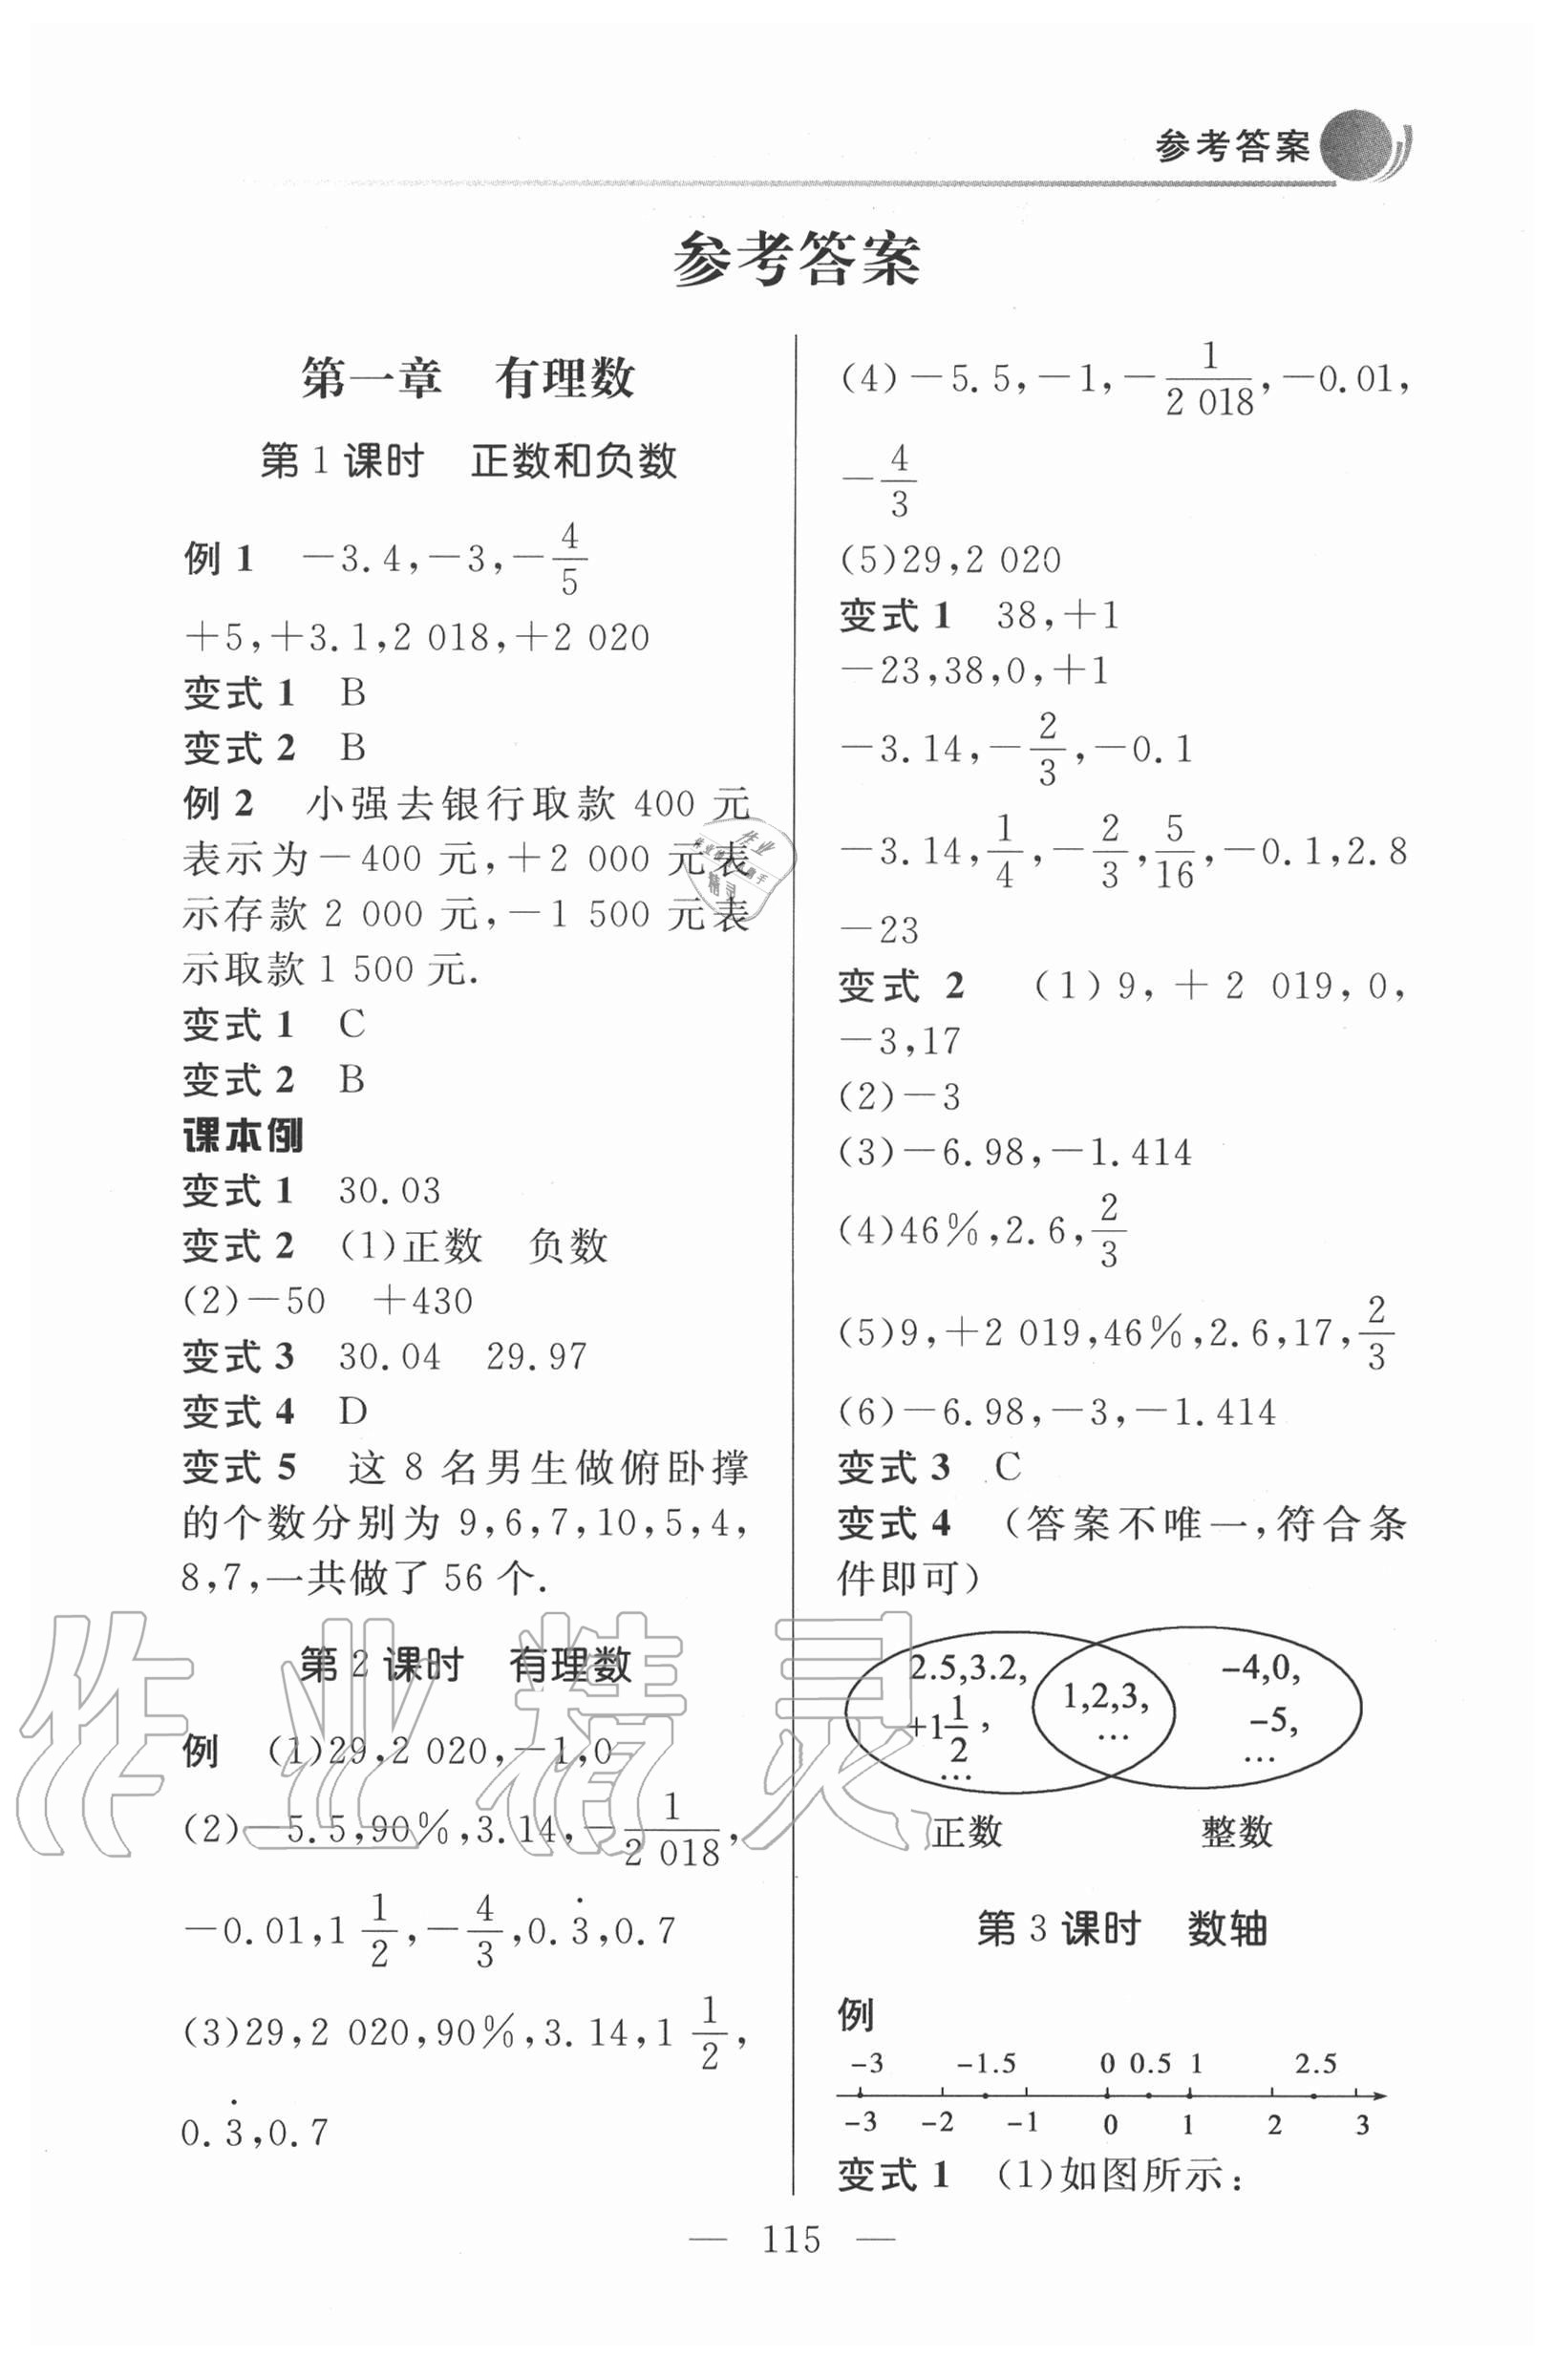 参考答案
参考答案
第一章　有理数
第 1 课时　正数和负数
例 1　－3.4,－3,－4/5
＋5,＋3.1,2 018,＋2 020
变式 1　B
变式 2　B
例 2　小强去银行取款 400 元
表示为－400 元,＋2 000 元表
示存款 2 000 元,－1 500 元表
示取款 1 500 元.
变式 1　C
变式 2　B
课本例
变式 1　30.03
变式 2　(1)正数　负数
(2)－50　＋430
变式 3　30.04　29.97
变式 4　D
变式 5　这 8 名男生做俯卧撑
的个数分别为 9,6,7,10,5,4,
8,7,一共做了 56 个.
第 2 课时　有理数
例　(1)29,2 020,－1,0
(2)－5.5,90%,3.14,－1/2 018,
－0.01,1 1/2,－4/3,0.3̇,0.7
(3)29,2 020,90%,3.14,1 1/2,
0.3̇,0.7
(4)－5.5,－1,－1/2 018,－0.01,
－4/3
(5)29,2 020
变式 1　38,＋1
－23,38,0,＋1
－3.14,－2/3,－0.1
－3.14,1/4,－2/3,5/16,－0.1,2.8
－23
变式 2　(1)9,＋2 019,0,
－3,17
(2)－3
(3)－6.98,－1.414
(4)46%,2.6,2/3
(5)9,＋2 019,46%,2.6,17,2/3
(6)－6.98,－3,－1.414
变式 3　C
变式 4　(答案不唯一,符合条
件即可)
2.5,3.2,
+1 1/2,
…
1,2,3,
…
-4,0,
-5,
…
正数　整数
第 3 课时　数轴
例
-3　-1.5　0　0.5　1　2.5
-3　-2　-1　0　1　2　3
变式 1　(1)如图所示:
— 115 —
作业精灵
作业
精灵